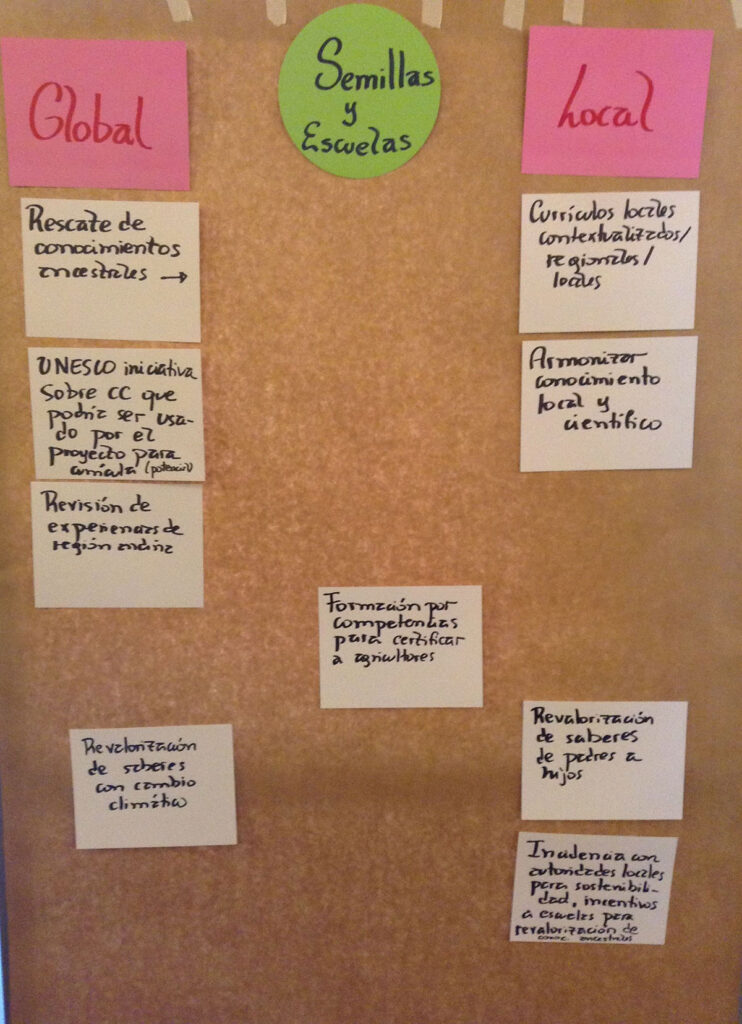 Semillas
y
Escuelas
Global
Rescate de
conocimientos
ancestrales →
UNESCO iniciativa
Sobre CC que
podría ser usa-
do por el
proyecto para
(potencial)
Revisión de
experiencias de
región andina
Revalorización
de saberes
con cambio
climático
Formación por
competencias
para certificar
a agricultores
Local
Currículos locales
contextualizados/
regionales/
locales
Armonizar
conocimiento
local y
científico
Revalorización
de saberes
de padres a
hijos
Incidencia con
autoridades locales
para sostenibil-
dad, incentivos
a escuelas para
revalorización de
conoc. ancestrales